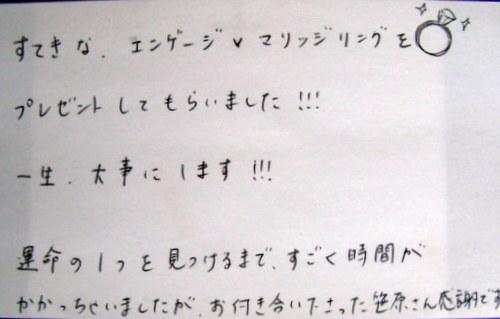 すてきな、エンゲージ♥マリッジリングを
プレゼントしてもらいました!!!
一生、大事にします!!!
運命の1つを見つけるまで、すごく時間が
かかっちゃいましたが、お付き合い下さった笹原さん感謝です